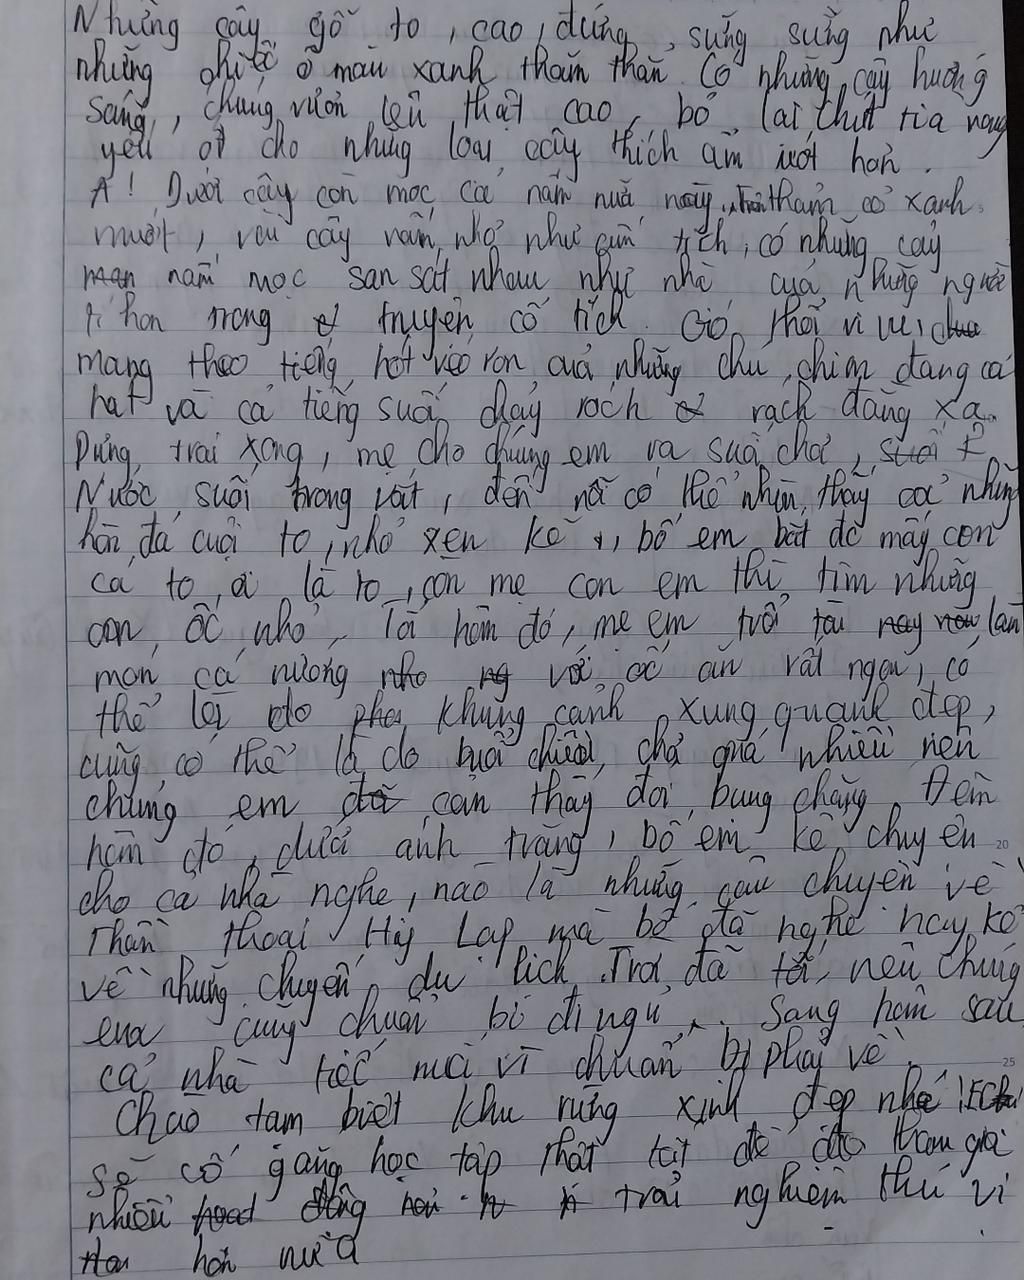 Những cây gỗ to, cao, đứng sừng sững như
những chiếc ô màu xanh thăm thẳm. Có những cây hướng
sáng, chúng vươn lên thật cao, bỏ lại chút tia nắng
yếu ớt cho những loại cây thích ẩm ướt hơn.
A! Dưới cây còn mọc cả nấm nữa này, thảm cỏ xanh
mướt, vài cây nấm nhỏ như cổ tích, có những cây
nấm mọc san sát nhau như nhà của những người
tí hon trong truyện cổ tích. Gió thổi vi vu,
mang theo tiếng hót véo von của những chú chim đang ca
hát và cả tiếng suối chảy róch rách đằng xa.
Dựng trại xong, mẹ cho chúng em ra suối chơi,
Nước suối trong vắt, đến nỗi có thể nhìn thấy các những
hòn đá cuội to, nhỏ xen kẽ, bố em bắt đc mấy con
cá to ơi là to, còn mẹ con em thì tìm những
con ốc nhỏ. Tối hôm đó, mẹ em trổ tài làm
món cá nướng với ốc ăn rất ngon, có
thể là do khung cảnh xung quanh đẹp,
cũng có thể là do buổi chiều chơi quá nhiều nên
chúng em cảm thấy đói bụng chăng. Đêm
hôm đó, dưới ánh trăng, bố em kể chuyện
cho cả nhà nghe, nào là những câu chuyện về
Thần thoại Hy Lạp mà bố đã nghe hay kể
về những chuyến du lịch. Trời đã tối, nên chúng
em cũng chuẩn bị đi ngủ. Sáng hôm sau
cả nhà tiếc nuối vì chuẩn bị phải về.
Chào tạm biệt khu rừng xinh đẹp nhé!
Sẽ cố gắng học tập thật tốt để tham gia
nhiều trải nghiệm thú vị
hơn nữa